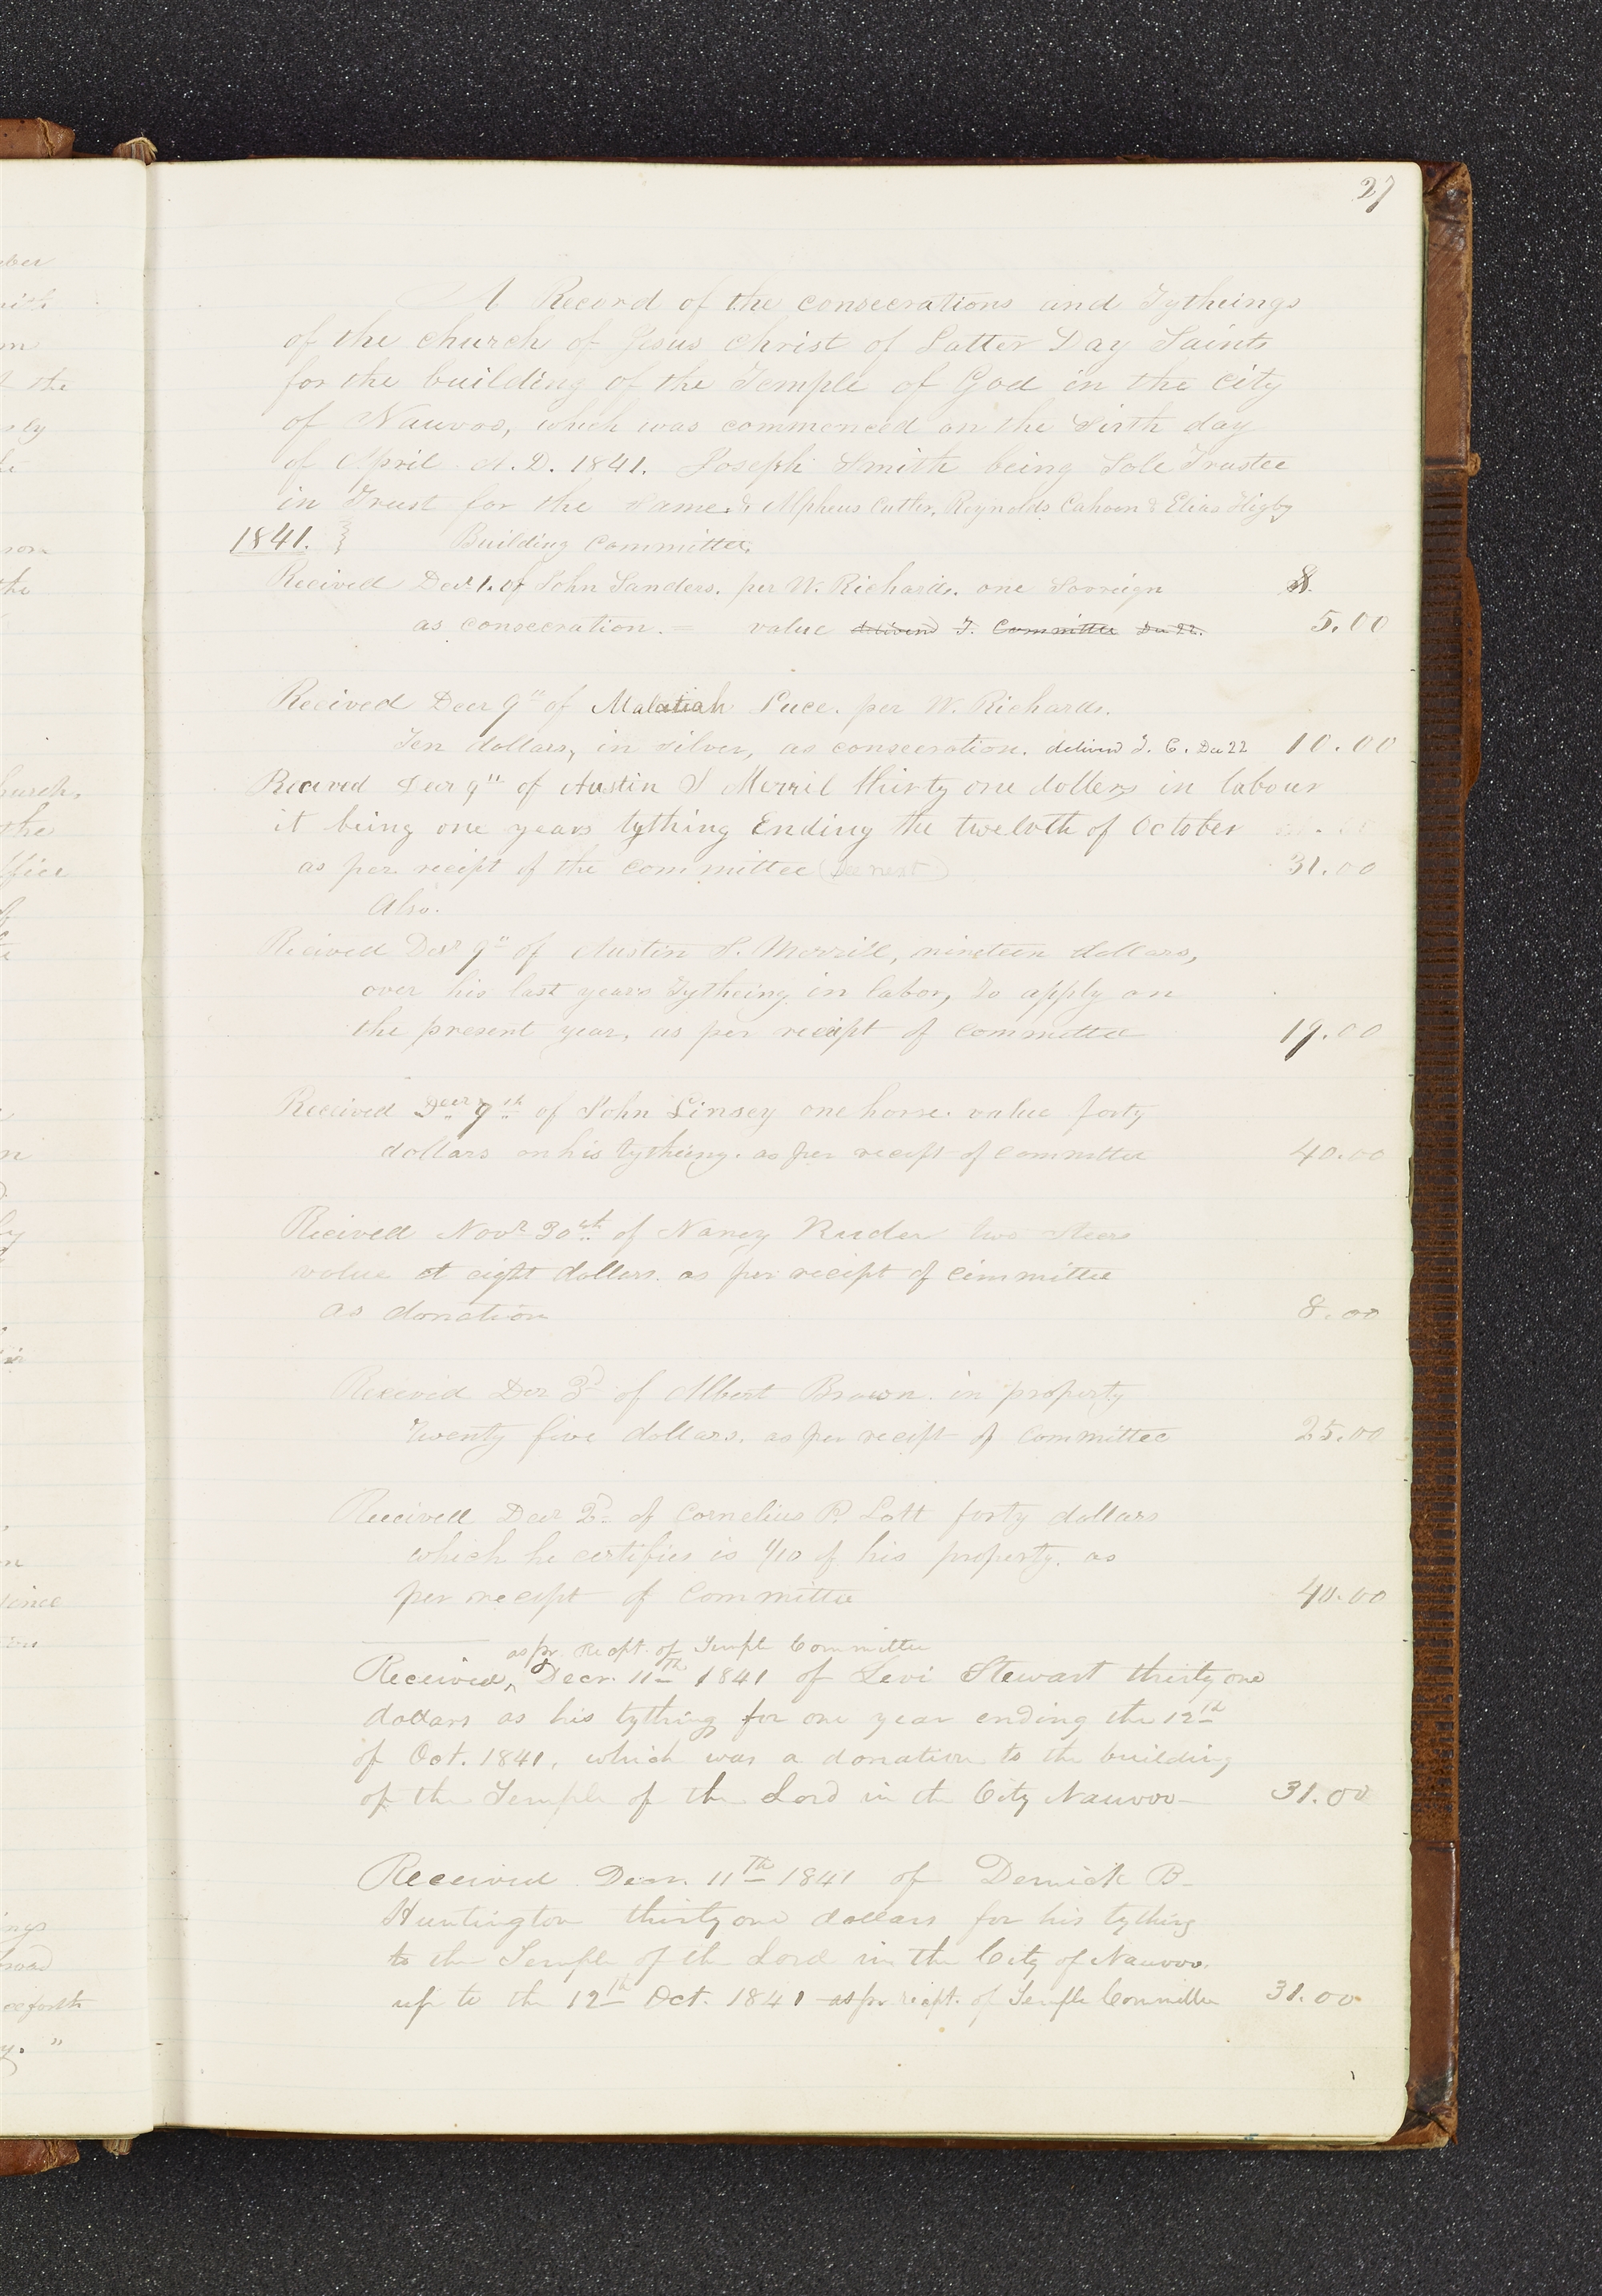 27
A Record of the consecrations and Tytheings
of the church of Jesus Christ of Latter Day Saints
for the building of the Temple of God in the City
of Nauvoo, which was commenced on the sixth day
of April A.D. 1841. Joseph Smith being Sole Trustee
in Trust for the Same. & Alpheus Cutler, Reynolds Cahoon & Elias Higby
1841. Building Committee.
Recived Decr 1. of John Sanders. per W. Richards. one Sovreign $
as consecration. = value delivered T. Committee Dec 22. 5.00
Recived Decr 9" of Malatiah Luce. per W. Richards.
Ten dollars, in silver, as consecration. deliverd T. C. Dec 22 10.00
Recived Decr 9" of Austin S Merril thirty one dollers in labour
it being one years tything Ending the twelvth of October
as per reciept of the committee (see next) 31.00
Also.
Recived Decr 9" of Austin S. Merrill, nineteen dollars,
over his last years Tytheing in labor, to apply on
the present year, as per reciept of committee 19.00
Received Decr 9th of John Linsey one horse. value forty
dollars on his tytheing. as per reciept of committee 40.00
Recived Novr 30th of Nancy Ruder two steers
value at eight dollars. as per reciept of committee
as donation 8.00
Received Decr 3d of Albert Brown. in property
Twenty five dollars. as per reciept of Committee 25.00
Received Decr 2d of Cornelius P. Lott forty dollars
which he certifies is 1/10 of his property. as
per reciept of Committee 40.00
as pr. Recpt. of Temple Committee
Received, Decr. 11th 1841 of Levi Stewart thirty one
dollars as his tything for one year ending the 12th
of Oct. 1841, which was a donation to the building
of the Temple of the Lord in the City Nauvoo— 31.00
Received Decr. 11th 1841 of Demick B—
Huntington thirty one dollars for his tything
to the Temple of the Lord in the City of Nauvoo.
up to the 12th Oct. 1841 as pr recpt. of Temple Committee 31.00